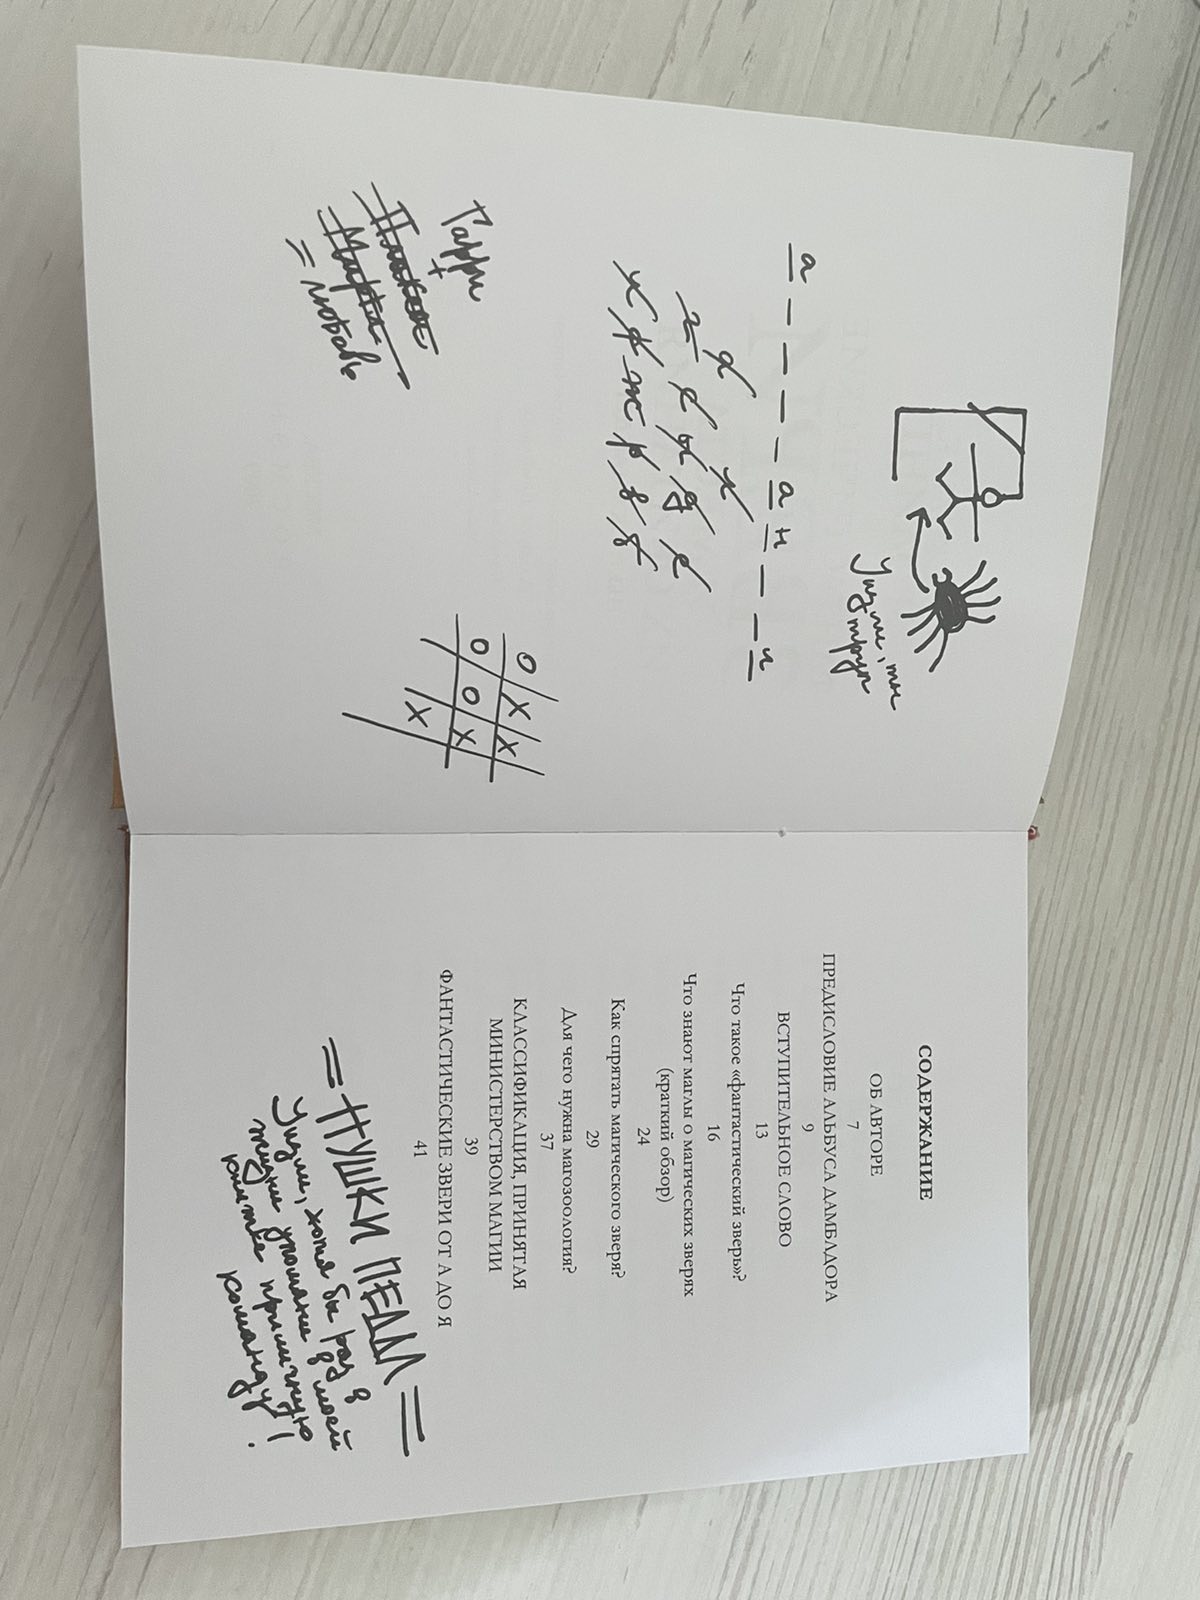 Уизли, ты
труп
а _ _ _ _ а н _ _ л
Гарри
+
Плакса
Миртл
= любовь
O X X
O O X
X
СОДЕРЖАНИЕ
ОБ АВТОРЕ
7
ПРЕДИСЛОВИЕ АЛЬБУСА ДАМБЛДОРА
9
ВСТУПИТЕЛЬНОЕ СЛОВО
13
Что такое «фантастический зверь»?
16
Что знают маглы о магических зверях
(краткий обзор)
24
Как спрятать магического зверя?
29
Для чего нужна магозоология?
37
КЛАССИФИКАЦИЯ, ПРИНЯТАЯ
МИНИСТЕРСТВОМ МАГИИ
39
ФАНТАСТИЧЕСКИЕ ЗВЕРИ ОТ А ДО Я
41
= ПУШКИ ПЕДДЛ =
Уизли, хотя бы раз в
жизни упомяни в моей
книжке приличную
команду!